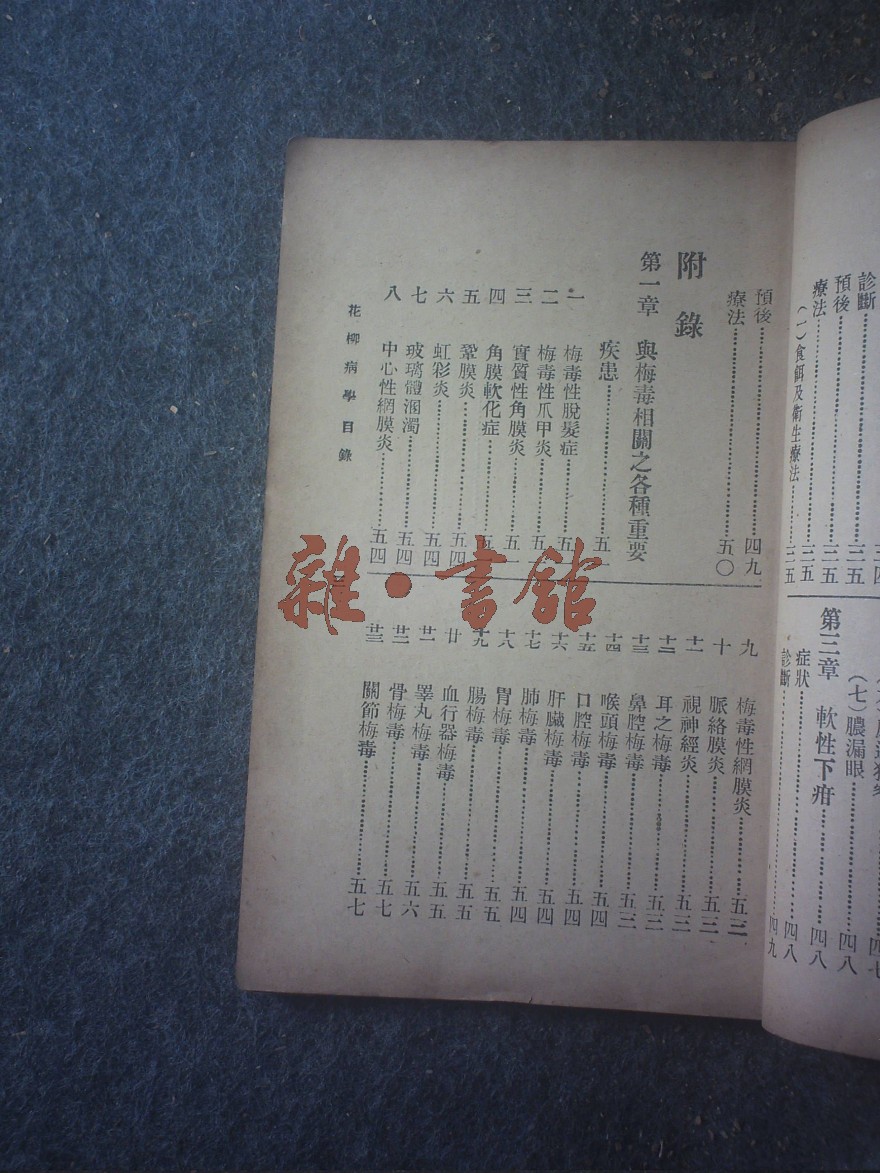 診斷……三四
預後……三五
療法……三五
(一)食餌及衛生療法……三五
(七)膿漏眼……四八
第三章 軟性下疳……四八
症狀……四八
診斷……四九
預後……四九
療法……五〇
附錄
第一章 與梅毒相關之各種重要
疾患……五一
一 梅毒性脫髮症……五一
二 梅毒性爪甲炎……五
三 實質性角膜炎……五
四 角膜軟化症……五
五 鞏膜炎……五四
六 虹彩炎……五四
七 玻璃體溷濁……五四
八 中心性網膜炎……五四
九 梅毒性網膜炎……五三
十 脈絡膜炎……五三
十一 視神經炎……五三
十二 耳之梅毒……五三
十三 鼻腔梅毒……五三
十四 喉頭梅毒……五四
十五 口腔梅毒……五四
十六 肝臟梅毒……五四
十七 肺梅毒……五四
十八 胃梅毒……五五
十九 腸梅毒……五五
廿 血行器梅毒……五五
廿一 睪丸梅毒……五六
廿二 骨梅毒……五七
廿三 關節梅毒……五七
花柳病學目錄
雜·書館